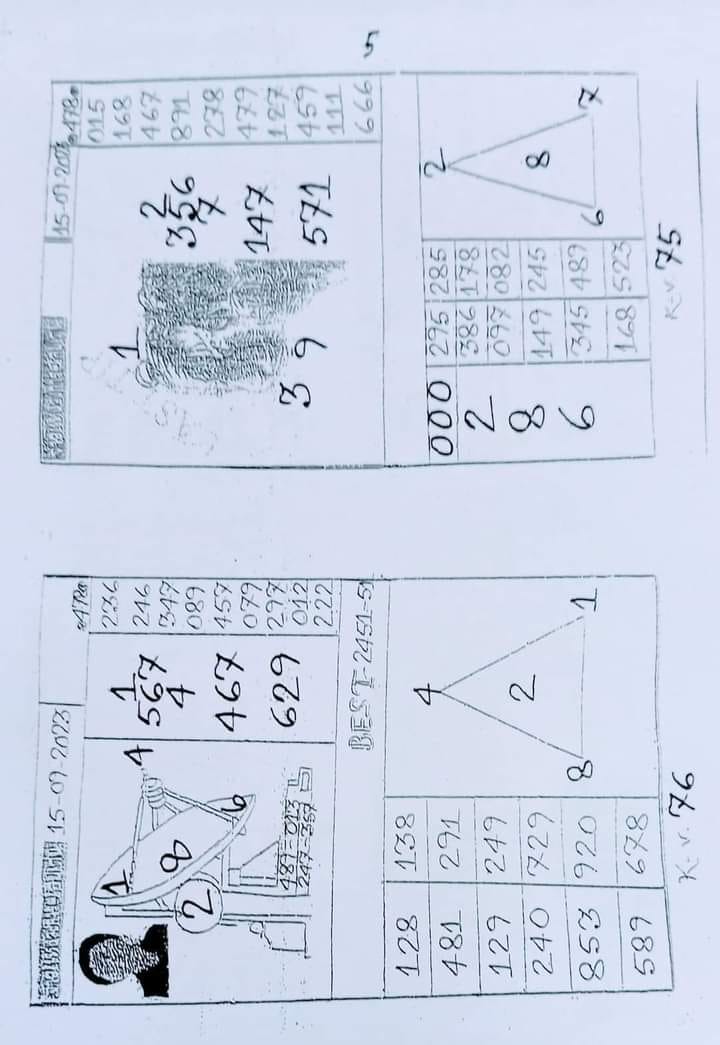 15-07-2023
236
1
4
1
246
567
347
8
4
089
2
6
467
457
079
489-013
629
297
247-357
012
222
BEST-2451-51
128 138
4
481 291
129 249
2
240 729
853 920
8 1
589 678
K-v. 76
015
1
2
168
356
467
7
891
278
147
479
3 9
127
571
459
111
666
5
000 295 285
2
2 386 178
097 082
8 149 245
8
6 345 489
6 7
168 523
K-v. 75